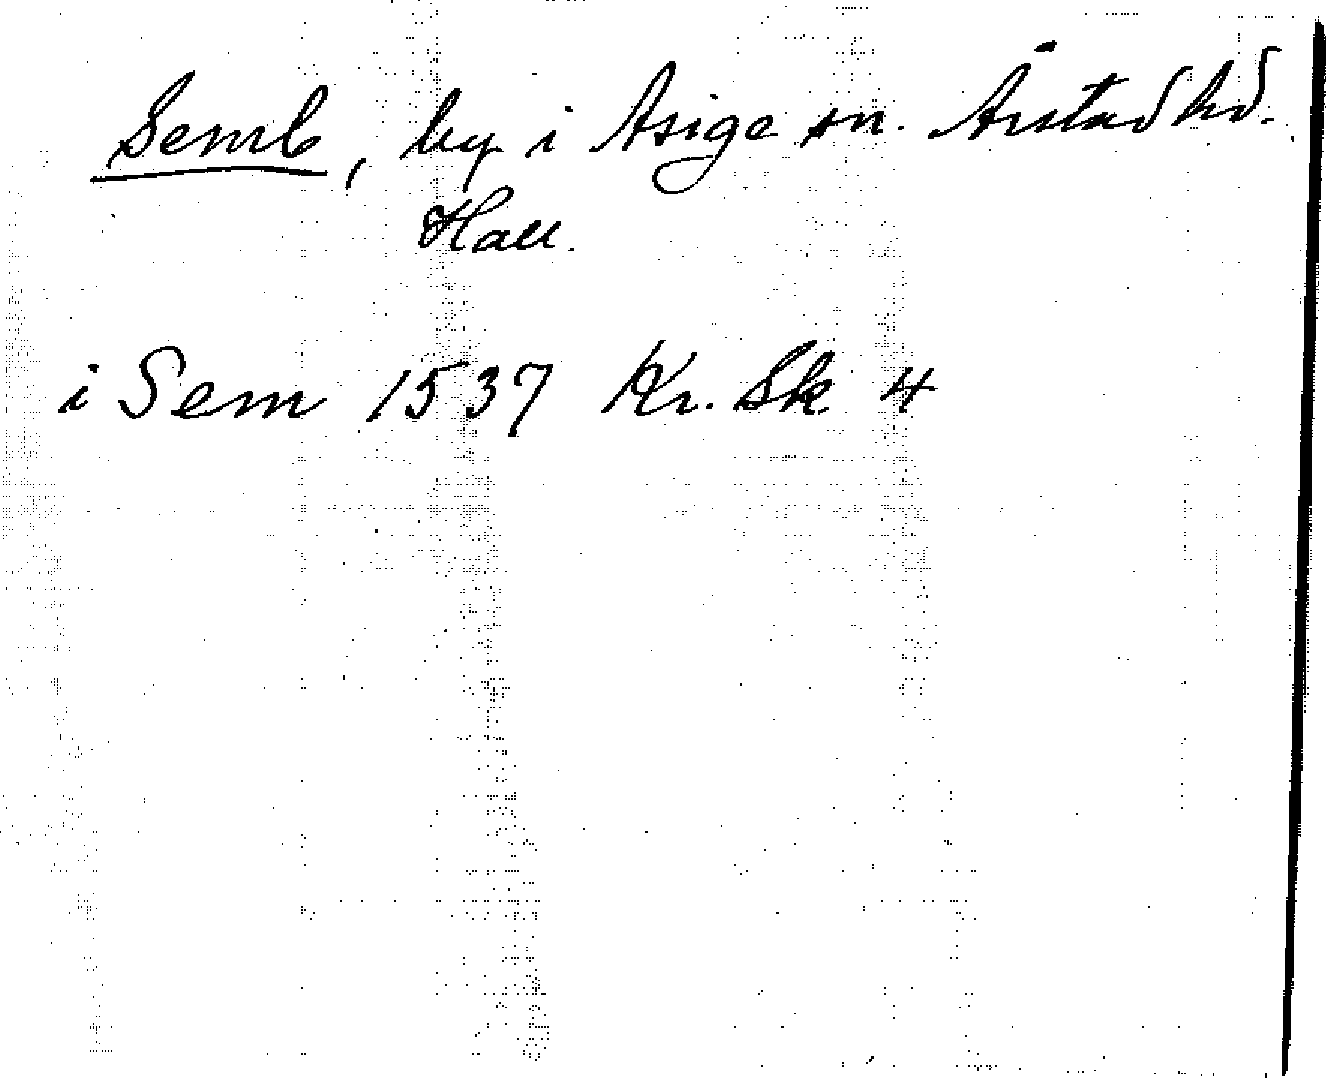 Semb, by i Asige sn. Årstad hd.
Hall.
i Sem 1537 Kr. Sk 4